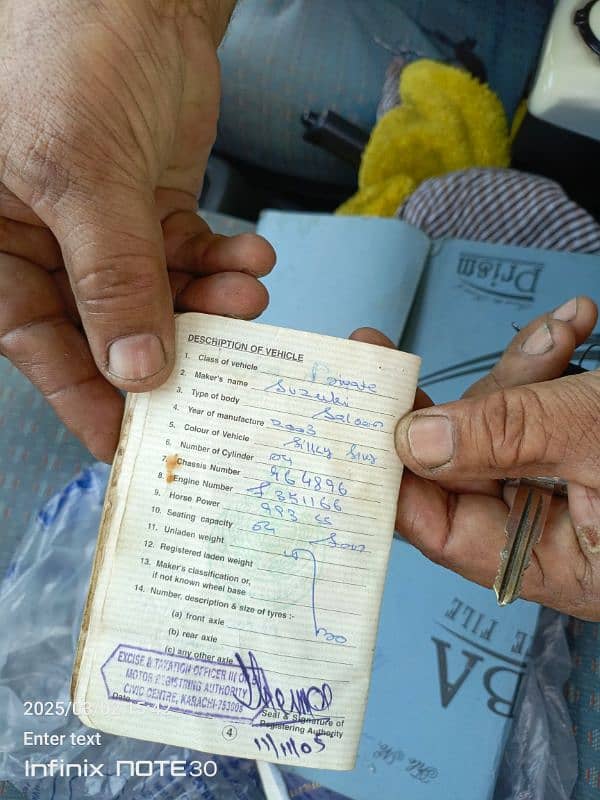 DESCRIPTION OF VEHICLE
1. Class of vehicle Private
2. Maker's name Suzuki
3. Type of body Saloon
4. Year of manufacture 2003
5. Colour of Vehicle Silky
6. Number of Cylinder 04
7. Chassis Number 964896
8. Engine Number 351166
9. Horse Power 993 cc
10. Seating capacity 04
11. Unladen weight
12. Registered laden weight
13. Maker's classification or,
if not known wheel base
14. Number, description & size of tyres :-
(a) front axle
(b) rear axle
(c) any other axle
EXCISE & TAXATION OFFICER
MOTOR REGISTRING AUTHORITY
CIVIC CENTRE, KARACHI
Date
Seal & Signature of
Registering Authority
4
11/11/05
Prism
BA
FILE
2025/03/
Enter text
Infinix NOTE 30